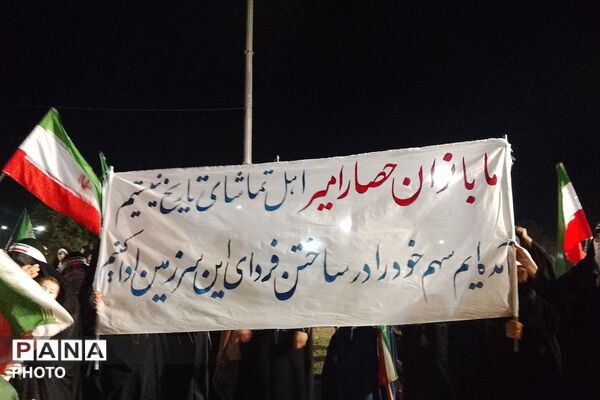 ما بانوان حصار امیر اهل تماشای تاریخ نیستیم
آمده ایم سهم خود را در ساختن فردای این سرزمین ادا کنیم
PANA
PHOTO